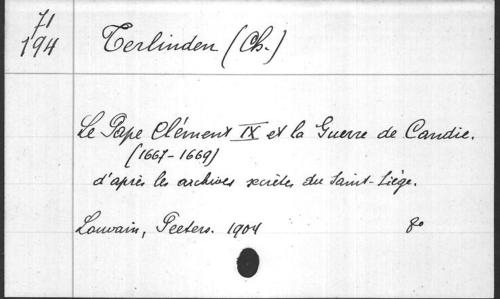 71
194
Terlinden (Ch.)
Le Pape Clément IX et la Guerre de Candie.
(1667-1669)
d'après les archives secrètes du Saint-Siège.
Louvain, Peeters. 1904 8o